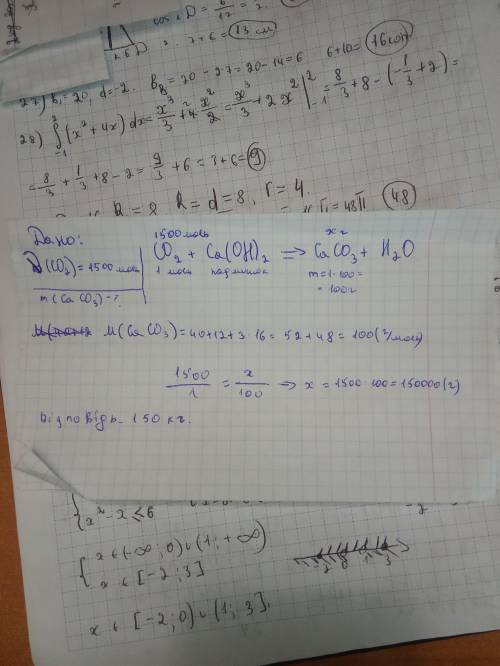 cos ∠D = 6/12 =
2. 7+6 = 13 см
6+10 = 16 см
27) b₁ = 20, d = -2. b₈ = 20 - 27 = 20 - 14 = 6
28) ∫₋₁² (x² + 4x) dx = x³/3 + 4·x²/2 = x³/3 + 2x² |₋₁² = 8/3 + 8 - (-1/3 + 2) =
= 8/3 + 1/3 + 8 - 2 = 9/3 + 6 = 3 + 6 = 9
R = 8 h = d = 8, r = 4.
= 48π 48
Дано:
ν(CO₂) = 1500 моль
m(CaCO₃) - ?
1500 моль x г
CO₂ + Ca(OH)₂ => CaCO₃ + H₂O
1 моль надлишок m = 1·100 =
= 100 г
M(CaCO₃) = 40 + 12 + 3·16 = 52 + 48 = 100 (г/моль)
1500/1 = x/100 => x = 1500·100 = 150000 (г)
Відповідь - 150 кг.
x² - x ≤ 6
x ∈ (-∞; 0) ∪ (1; +∞)
x ∈ [-2; 3]
x ∈ [-2; 0) ∪ (1; 3].